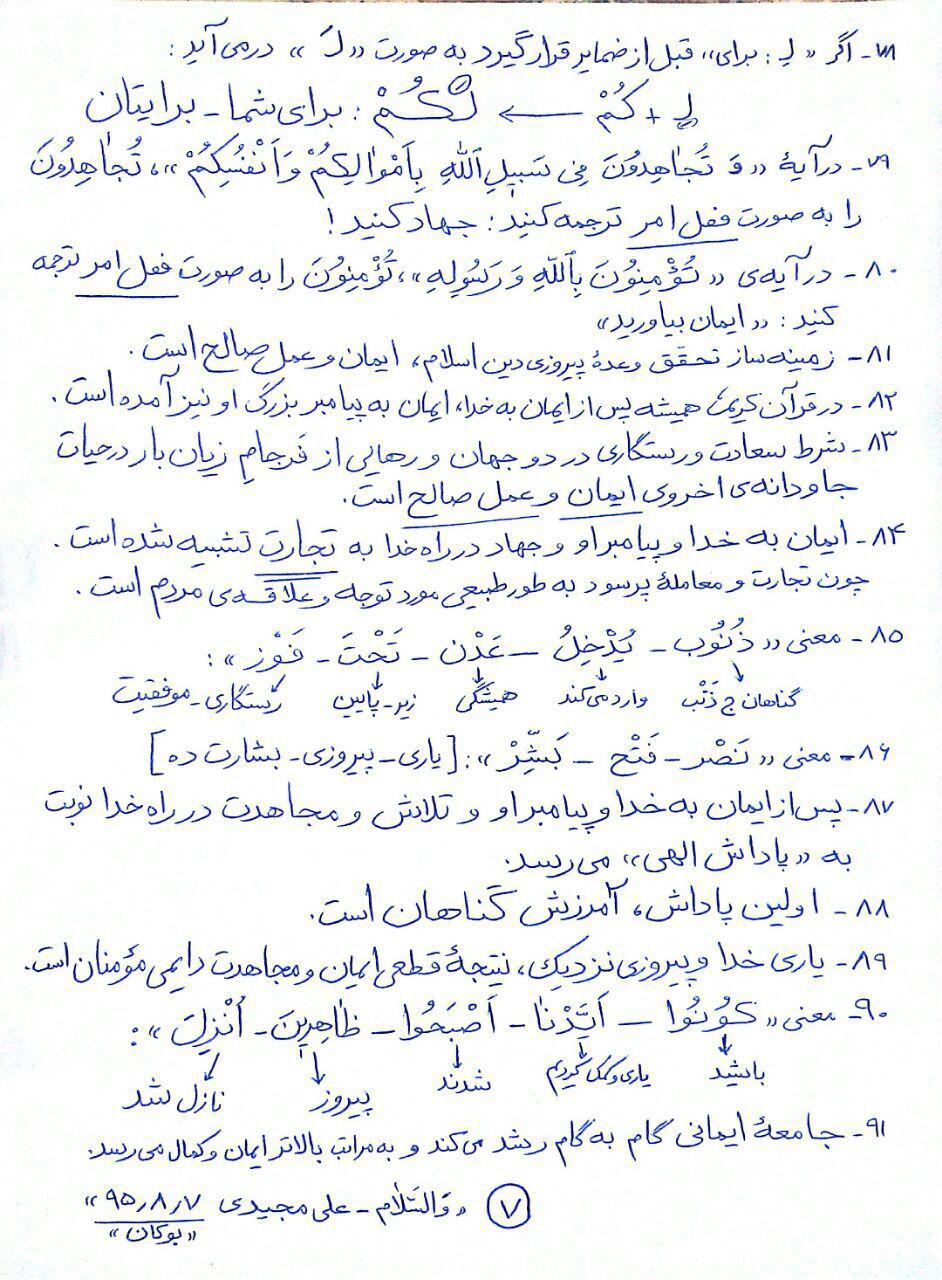 ۷۸- اگر «لِ : برای» قبل از ضمایر قرار گیرد به صورت «لَ» درمی‌آید :
لِ + کُمْ ← لَکُمْ : برای شما - برایتان
۷۹- در آیهٔ «وَ تُجٰاهِدُونَ فِی سَبِیلِ ٱللهِ بِأَمْوٰالِکُمْ وَ أَنْفُسِکُمْ»، تُجٰاهِدُونَ
را به صورت فعل امر ترجمه کنید : جهاد کنید !
۸۰- در آیه‌ی «تُؤْمِنُونَ بِٱللهِ وَ رَسُولِهِ»، تُؤْمِنُونَ را به صورت فعل امر ترجمه
کنید : «ایمان بیاورید»
۸۱- زمینه‌ساز تحقّق وعدهٔ پیروزی دین اسلام، ایمان و عمل صالح است.
۸۲- در قرآن کریم، همیشه پس از ایمان به خدا، ایمان به پیامبر بزرگ او نیز آمده است.
۸۳- شرط سعادت و رستگاری در دو جهان و رهایی از فَرجامِ زیان بار در حیات
جاودانه‌ی اخروی ایمان و عمل صالح است.
۸۴- ایمان به خدا و پیامبر او و جهاد در راه خدا به تجارت تشبیه شده است.
چون تجارت و معاملهٔ پرسود به طور طبیعی مورد توجه و علاقه‌ی مردم است.
۸۵- معنی «ذُنُوب - یُدْخِلُ - عَدْن - تَحْتَ - فَوْز» :
گناهان ج ذَنْب وارد می‌کند همیشگی زیر - پایین رستگاری - موفقیت
۸۶- معنی «نَصْر - فَتْح - بَشِّرْ» : [یاری - پیروزی - بشارت ده]
۸۷- پس از ایمان به خدا و پیامبر او و تلاش و مجاهدت در راه خدا نوبت
به «پاداش الهی» می‌رسد.
۸۸- اولین پاداش، آمرزش گناهان است.
۸۹- یاری خدا و پیروزی نزدیک، نتیجهٔ قطعی ایمان و مجاهدت دایمی مؤمنان است.
۹۰- معنی «کُونُوا - أَیَّدْنٰا - أَصْبَحُوا - ظٰاهِرِینَ - أُنْزِلَ» :
باشید یاری و کمک کردیم شدند پیروز نازل شد
۹۱- جامعهٔ ایمانی گام به گام رشد می‌کند و به مراتب بالاتر ایمان و کمال می‌رسد.
۷ «وَالسَّلٰام - علی مجیدی ۹۵٫۸٫۷»
«بوکان»